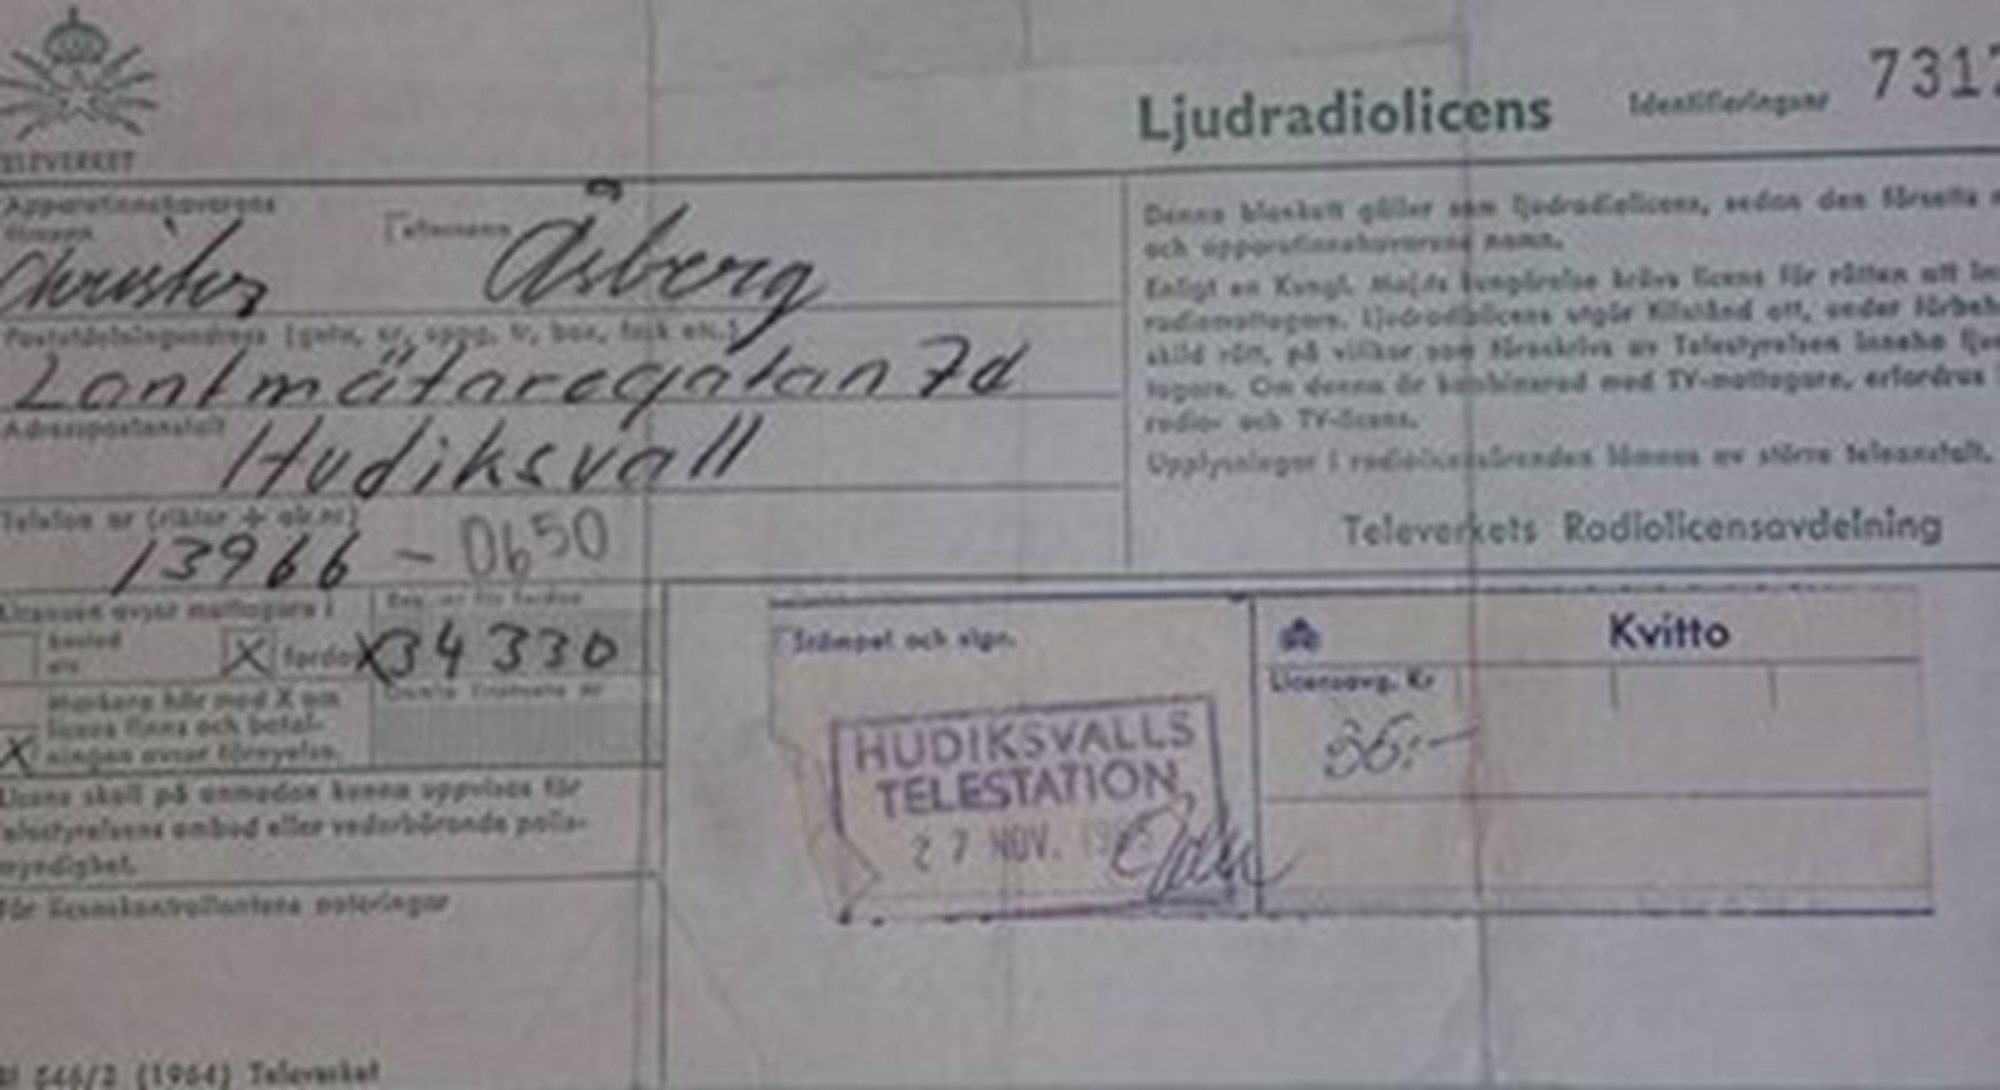 TELEVERKET
Ljudradiolicens
Identifieringsnr 7317
Apparatinnehavarens
förnamn
efternamn
Christer Åsberg
Postutdelningsadress (gata, nr, uppg, tr, box, fack etc.)
Lantmätaregatan 7d
Adresspostanstalt
Hudiksvall
Telefon nr (riktnr + ab.nr)
13966 - 0650
Licensen avser mottagare i
bostad
etc
X fordon
Reg.-nr för fordon
X34330
Gamla licensens nr
X
Markera här med X om
licens finns och betal-
ningen avser förnyelse.
Licens skall på anmodan kunna uppvisas för
Telestyrelsens ombud eller vederbörande polis-
myndighet.
För licenskontrollantens noteringar
Bl 546/2 (1964) Televerket
Denna blankett gäller som ljudradiolicens, sedan den försetts
och apparatinnehavarens namn.
Enligt en Kungl. Maj:ts kungörelse krävs licens för rätten att
radiomottagare. Ljudradiolicens utgör tillstånd att, under
skild rätt, på villkor som föreskrivs av Telestyrelsen inneha
tagare. Om denna är kombinerad med TV-mottagare, erfordras
radio- och TV-licens.
Upplysningar i radiolicensärenden lämnas av större teleanstalt.
Televerkets Radiolicensavdelning
Stämpel och sign.
HUDIKSVALLS
TELESTATION
27 NOV.
Kvitto
Licensavg. Kr
35:-